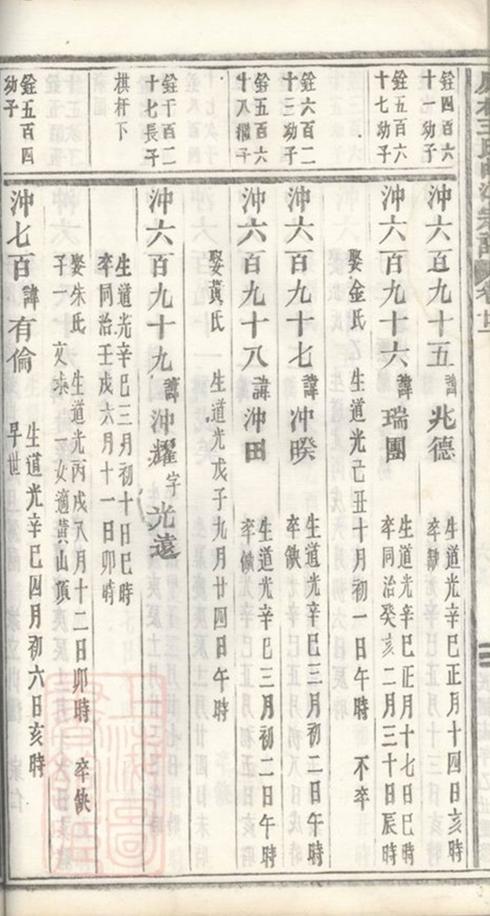 銓四百六
十一幼子
沖六百九十五 諱 兆德
生道光辛巳正月十四日亥時
卒缺
銓五百六
十七幼子
沖六百九十六 諱 瑞團
生道光辛巳正月十七日巳時
卒同治癸亥二月三十日辰時
娶金氏 生道光己丑十月初一日午時 不卒
銓六百二
十三幼子
沖六百九十七 諱 沖暌
生道光辛巳三月初二日午時
卒缺
銓五百六
十八繼子
沖六百九十八 諱 沖田
生道光辛巳三月初二日午時
卒缺
娶黃氏 生道光戊子九月廿四日午時
銓千百二
十七長子
沖六百九十九 諱 沖耀 字 光遠
棋杆下
生道光辛巳三月初十日巳時
卒同治壬戌六月十一日卯時
娶朱氏 生道光丙戌八月十二日卯時 卒缺
子一 文求 一女適黃山頂
銓五百四
幼子
沖七百 諱 有倫
生道光辛巳四月初六日亥時
早世